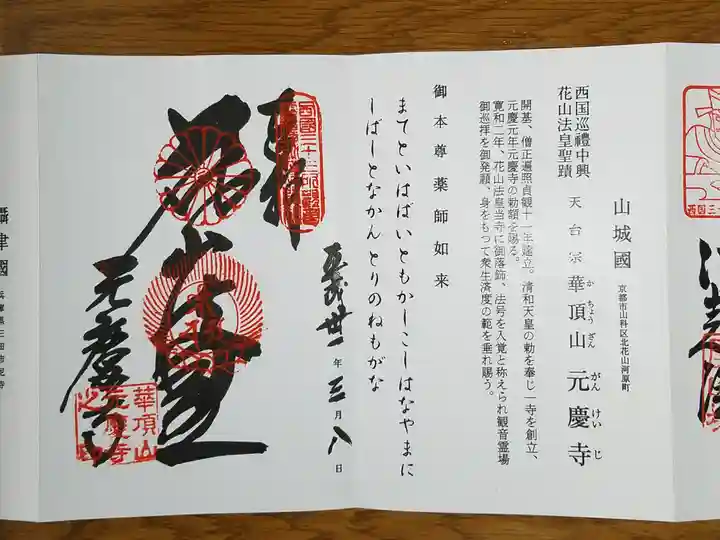 山城國
京都市山科区北花山河原町
西国巡禮中興
花山法皇聖蹟
天台宗 華頂山 元慶寺
か ちょう ざん がん けい じ
開基、僧正遍照貞観十一年建立。清和天皇の勅を奉じ一寺を創立、
元慶元年元慶寺の勅額を賜る。
寛和二年、花山法皇当寺に御落飾、法号を入覚と称えられ観音霊場
御巡拝を御発願、身をもって衆生済度の範を垂れ賜う。
御本尊 薬師如来
まてといはばいともかしこしはなやまに
しばしとなかん とりのねもがな
奉拝
平成卅一年三月八日
花山法皇
元慶寺
華頂山
元慶寺
之印
攝津國